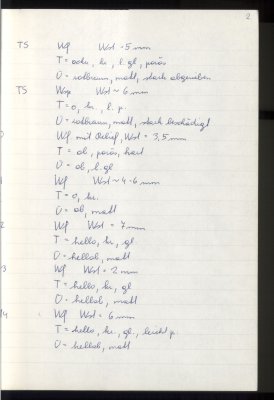 2
TS Wf Wst ~5 mm
T = ockr, kr, l. gl, porös
O = rotbraun, matt, stark abgerieben
TS Wf Wst ~ 6 mm
T = o, kr, l. p.
O = rotbraun, matt, stark beschädigt
Wf mit Relief, Wst = 3,5 mm
T = ob, porös, hart
O = ob, l. gl
Wf Wst ~ 4-6 mm
T = o, kr.
O = ob, matt
2 Wf Wst = 7 mm
T = hello, kr, gl.
O = hellob, matt
3 Wf Wst = 2 mm
T = hello, kr, gl
O = hellob, matt
14 Wf Wst = 6 mm
T = hello, kr, gl., leicht p.
O = hellob, matt